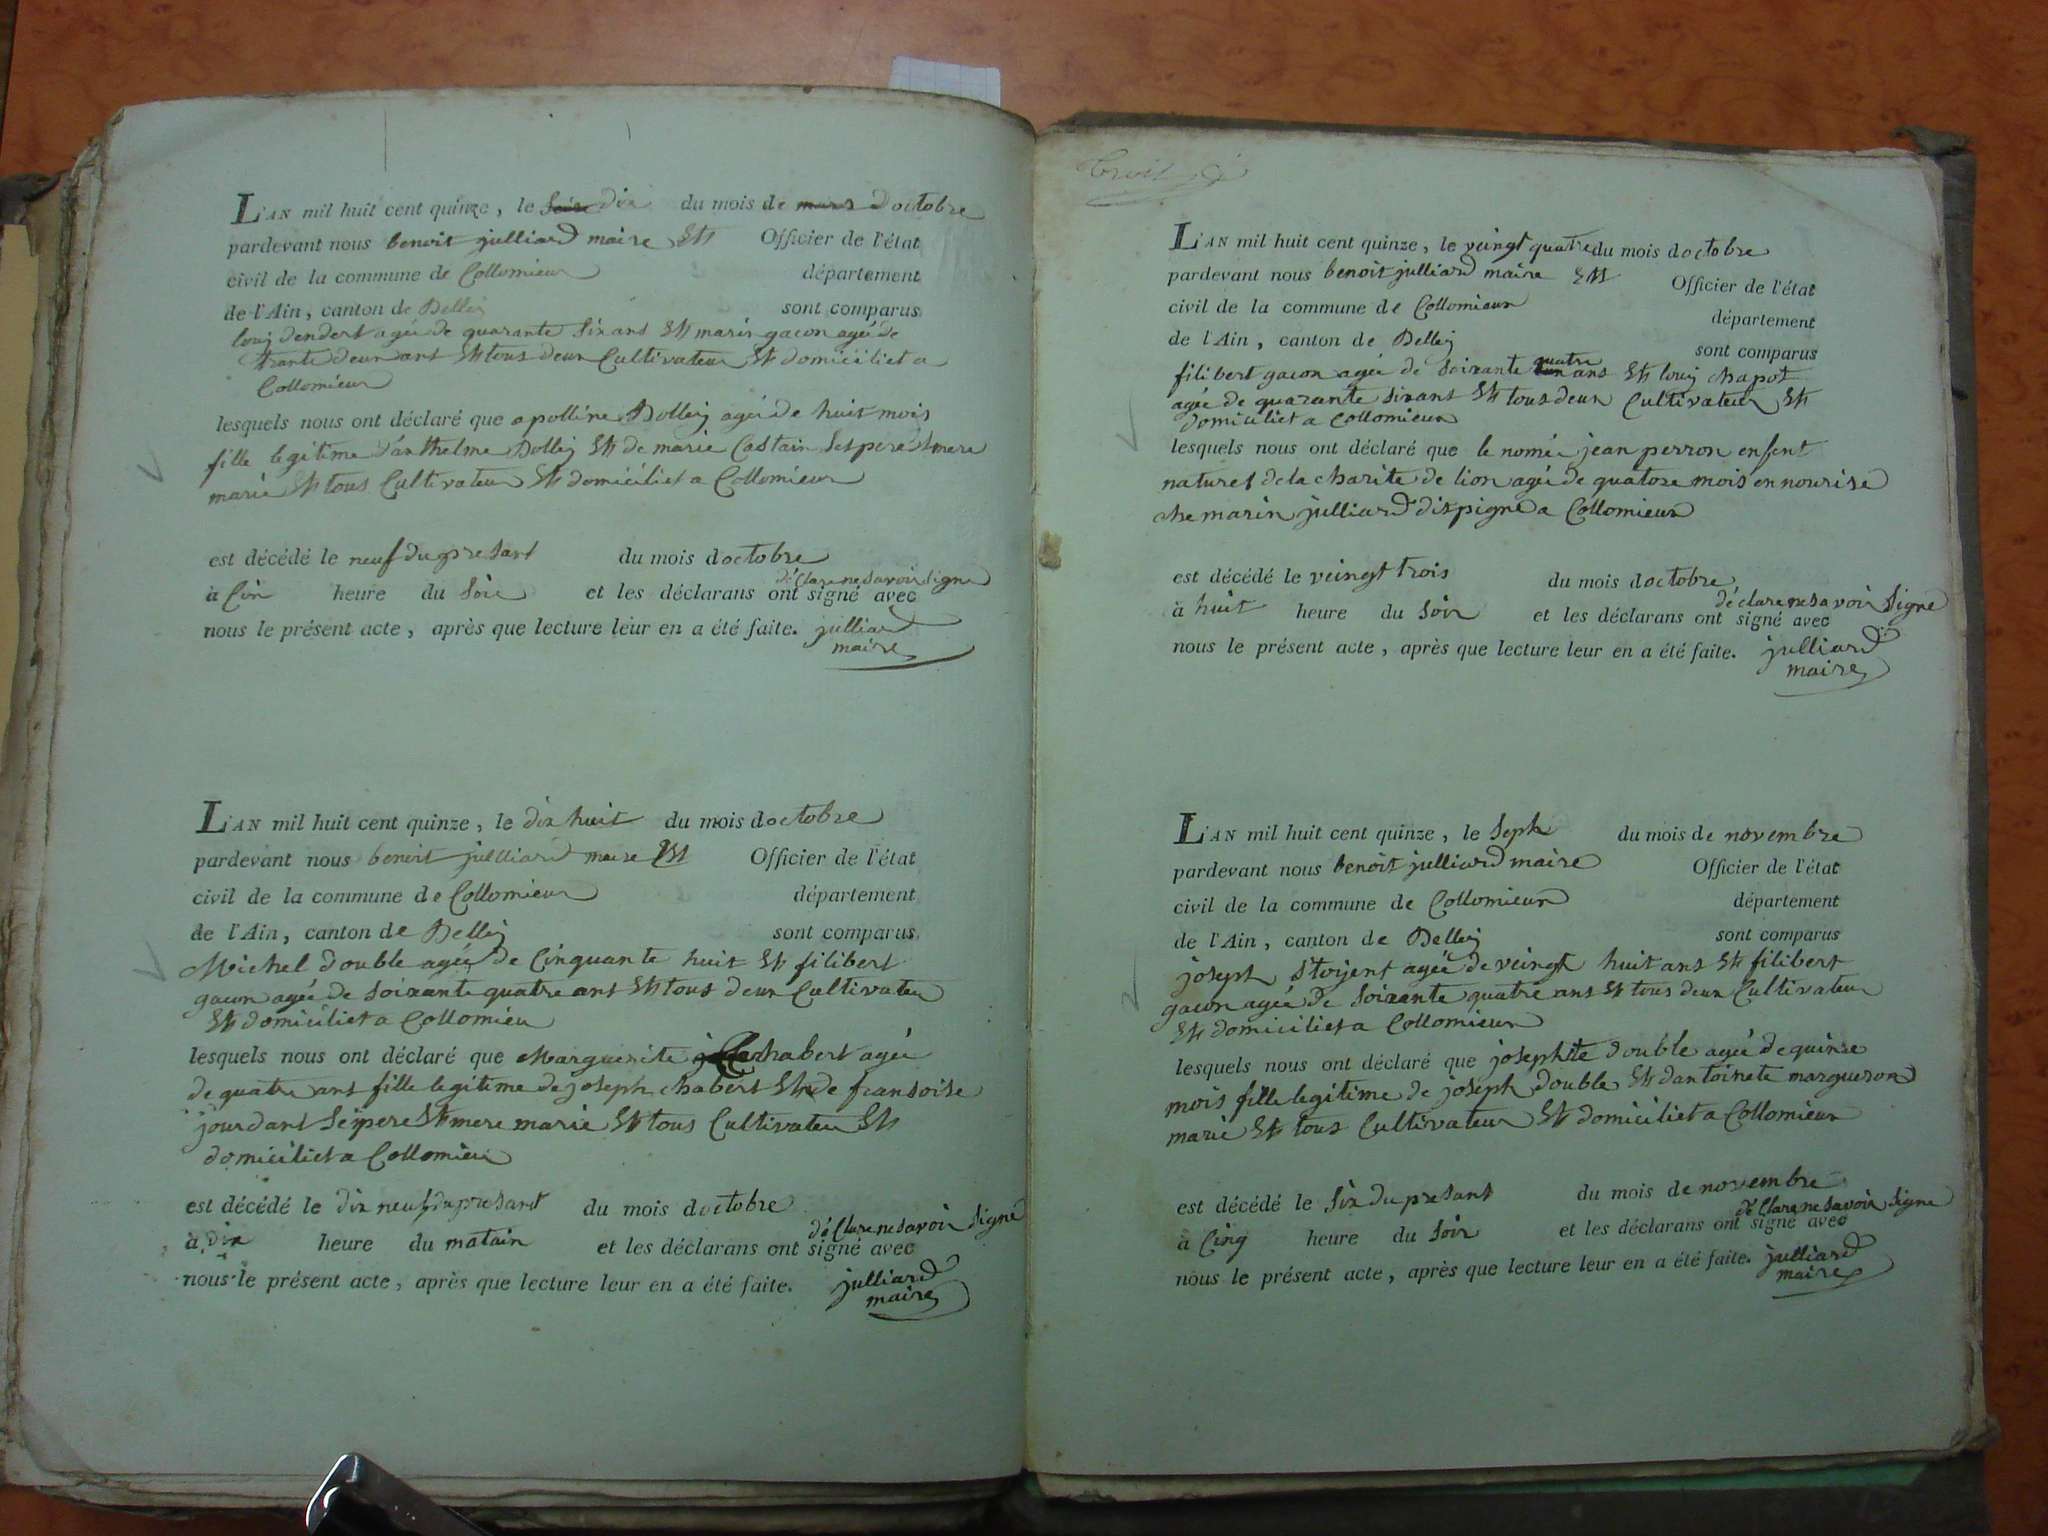 L'AN mil huit cent quinze, le dix du mois de mars doctobre
pardevant nous benoit julliard maire Officier de l'état
civil de la commune de Collomieux département
de l'Ain, canton de Belley sont comparus
louis dendert agée de quarante six ans Et marin gacon agée de
trante deux ans Et tous deux Cultivateur Et domiciliet a
Collomieux
lesquels nous ont déclaré que apolline Bolley agée de huit mois
fille legitime d'anthelme Bolley Et de marie Castain Ses pere Et mere
marié Et tous Cultivateur Et domiciliet a Collomieux
est décédé le neuf du presant du mois doctobre
à Cin heure du Soir et les déclarans ont signé avec déClare ne Savoir Signe
nous le présent acte, après que lecture leur en a été faite. julliard
maire
L'AN mil huit cent quinze, le dix huit du mois doctobre
pardevant nous benoit julliard maire Officier de l'état
civil de la commune de Collomieux département
de l'Ain, canton de Belley sont comparus
Michel double agée de Cinquante huit Et filibert
gacon agée de Soixante quatre ant Et tous deux Cultivateu
Et domiciliet a Collomieu
lesquels nous ont déclaré que Marguerite chabert agée
de quatre ans fille legitime de joseph chabert Et de fransoise
jourdant Ses pere Et mere marié Et tous Cultivateu Et
domiciliet a Collomieu
est décédé le dix neuf du presant du mois doctobre
à dix heure du matain et les déclarans ont signé avec déClare ne Savoir Signe
nous le présent acte, après que lecture leur en a été faite. julliard
maire
L'AN mil huit cent quinze, le veingt quatre du mois doctobre
pardevant nous benoit julliard maire Officier de l'état
civil de la commune de Collomieux département
de l'Ain, canton de Belley sont comparus
filibert gacon agée de Soixante quatre ans Et louis chapot
agée de quarante six ans Et tous deux Cultivateur Et
domiciliet a Collomieux
lesquels nous ont déclaré que le nomée jean perron enfent
naturel de la charite de lion agée de quatorse mois en nourise
che marin julliard a Collomieux
est décédé le veingt trois du mois doctobre
à huit heure du Soir et les déclarans ont signé avec déclare ne Savoir Signe
nous le présent acte, après que lecture leur en a été faite. julliard
maire
L'AN mil huit cent quinze, le Sept du mois de novembre
pardevant nous benoit julliard maire Officier de l'état
civil de la commune de Collomieux département
de l'Ain, canton de Belley sont comparus
joseph agée de veingt huit ans Et filibert
gacon agée de Soixante quatre ans Et tous deux Cultivateur
Et domiciliet a Collomieux
lesquels nous ont déclaré que josephte double agée de quinse
mois fille legitime de joseph double Et dantoinete margueron
marié Et tous Cultivateur Et domiciliet a Collomieux
est décédé le Six du presant du mois de novembre
à Cinq heure du Soir et les déclarans ont signé avec déClare ne Savoir Signe
nous le présent acte, après que lecture leur en a été faite. julliard
maire